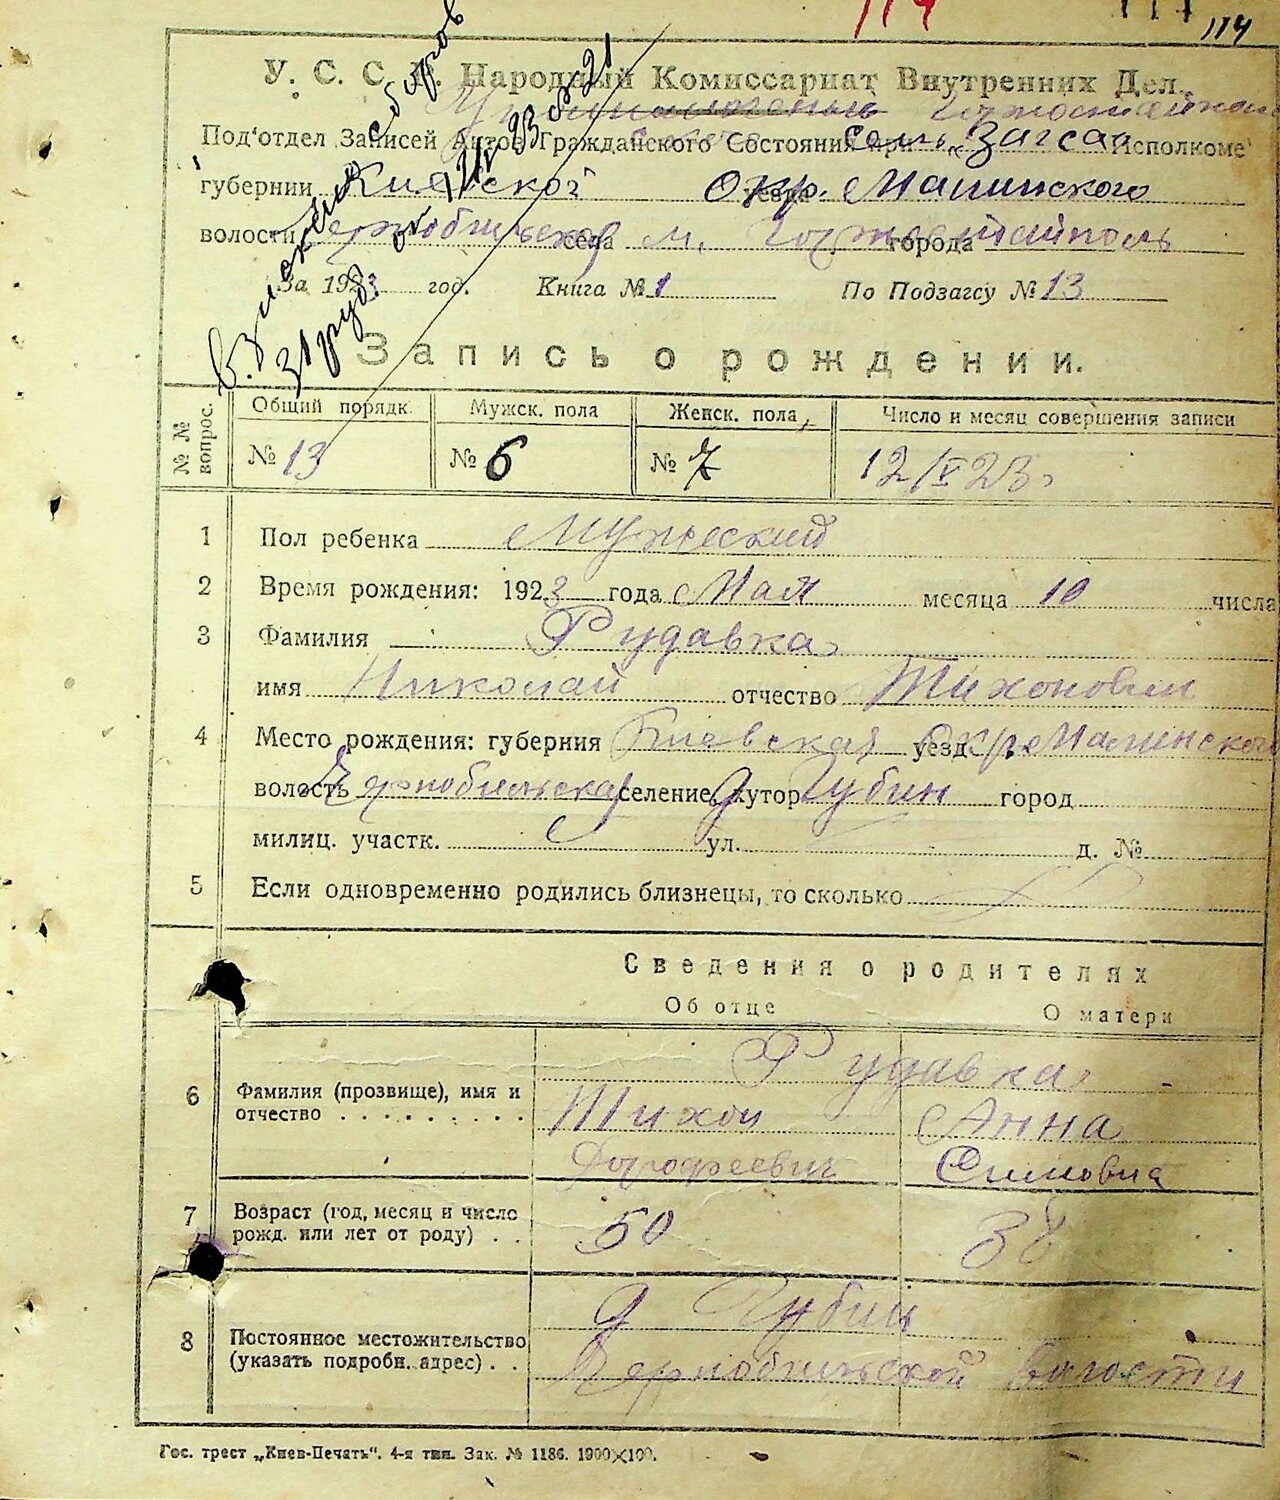 114
114
У. С. С. Р. Народный Комиссариат Внутренних Дел.
Под'отдел Записей Актов Гражданского Состояния при сель „Загсе" Исполкоме
губернии Киевской окр. Малинского
волости Чернобыльской села м. города Горностайполь
За 1923 год. Книга № 1 По Подзагсу № 13
Взыскано
31 руб. от 21/V 23
Запись о рождении.
№ № вопрос.
Общий порядк. Мужск. пола Женск. пола, Число и месяц совершения записи
№ 13 № 6 № 7 12/V 23
1 Пол ребенка Мужеский
2 Время рождения: 1923 года Мая месяца 10 числа
3 Фамилия Рудавка
имя Николай отчество Тихонович
4 Место рождения: губерния Киевская уезд окр. Малинского
волость Чернобыльская селение, хутор д Губин город
милиц. участк. ул. д. №
5 Если одновременно родились близнецы, то сколько
Сведения о родителях
Об отце О матери
Рудавка
6 Фамилия (прозвище), имя и отчество . . . . . . . . . Тихон Анна
Дорофеевич Симовна
7 Возраст (год, месяц и число рожд. или лет от роду) . . 50 38
8 Постоянное местожительство (указать подробн. адрес) . . д Губин
Чернобыльской волости
Гос. трест „Киев-Печать". 4-я тип. Зак. № 1186. 1900×100.